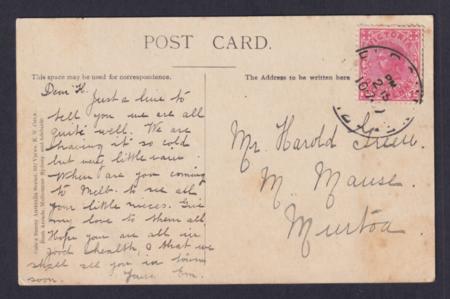 POST CARD.
VICTORIA
This space may be used for correspondence.
The Address to be written here
Dear H.
Just a line to
tell you we are all
quite well. We are
having it so cold
but very little rain.
When are you coming
to Melb. to see all
your little nieces. Give
my love to them all
Hope you are all in
good health, & that we
shall see you in town
soon. Yours Em.
Mr. Harold
M. Manse.
Murtoa